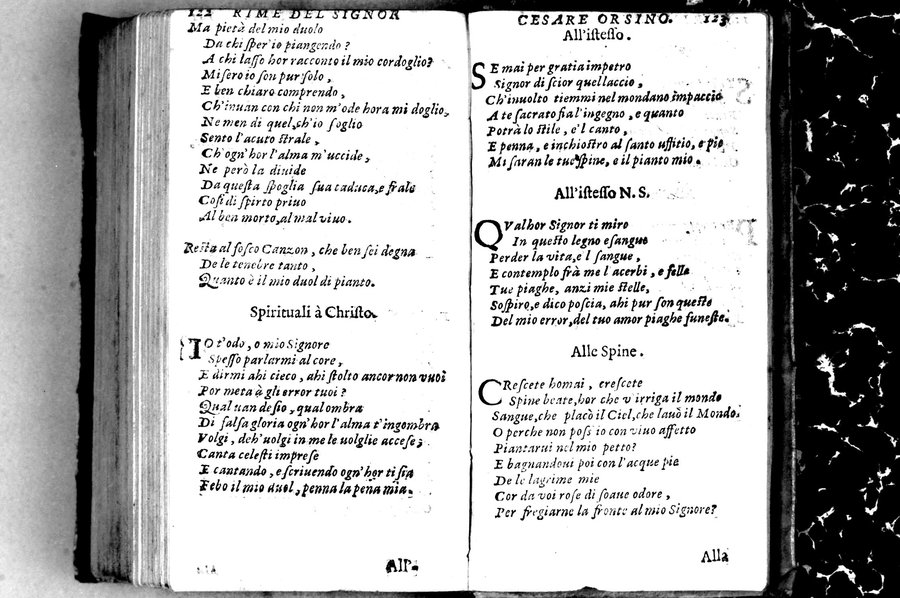 122 RIME DEL SIGNOR
Ma pietà del mio duolo
Da chi sper'io piangendo?
A chi lasso hor racconto il mio cordoglio?
Misero io son pur solo,
E ben chiaro comprendo,
Ch'inuan con chi non m'ode hora mi doglio,
Ne men di quel, ch'io soglio
Sento l'acuto strale,
Ch'ogn'hor l'alma m'uccide,
Ne però la diuide
Da questa spoglia sua caduca, e frale
Cosi di spirto priuo
Al ben morto, al mal viuo.
Resta al fosco Canzon, che ben sei degna
De le tenebre tanto,
Quanto è il mio duol di pianto.
Spirituali à Christo.
IO t'odo, o mio Signore
Spesso parlarmi al core,
E dirmi ahi cieco, ahi stolto ancor non vuoi
Por meta à gli error tuoi?
Qual uan desio, qual ombra
Di falsa gloria ogn'hor l'alma t'ingombra
Volgi, deh'uolgi in me le uolglie accese;
Canta celesti imprese
E cantando, e scriuendo ogn'hor ti sia
Febo il mio duol, penna la pena mia.
All'-
CESARE ORSINO. 123
All'istesso.
SE mai per gratia impetro
Signor di scior quel laccio,
Ch'inuolto tiemmi nel mondano impaccio
A te sacrato fia l'ingegno, e quanto
Potrà lo stile, e'l canto,
E penna, e inchiostro al santo uffitio, e pio
Mi saran le tue spine, e il pianto mio.
All'istesso N. S.
QValhor Signor ti miro
In questo legno esangue
Perder la vita, e l sangue,
E contemplo frà me l acerbi, e felle
Tue piaghe, anzi mie stelle,
Sospiro, e dico poscia, ahi pur son queste
Del mio error, del tuo amor piaghe funeste.
Alle Spine.
CRescete homai, crescete
Spine beate, hor che v irriga il mondo
Sangue, che placò il Ciel, che lauò il Mondo.
O perche non poss io con viuo affetto
Piantarui nel mio petto?
E bagnandoui poi con l'acque pie
De le lagrime mie
Cor da voi rose di soaue odore,
Per fregiarne la fronte al mio Signore?
Alla